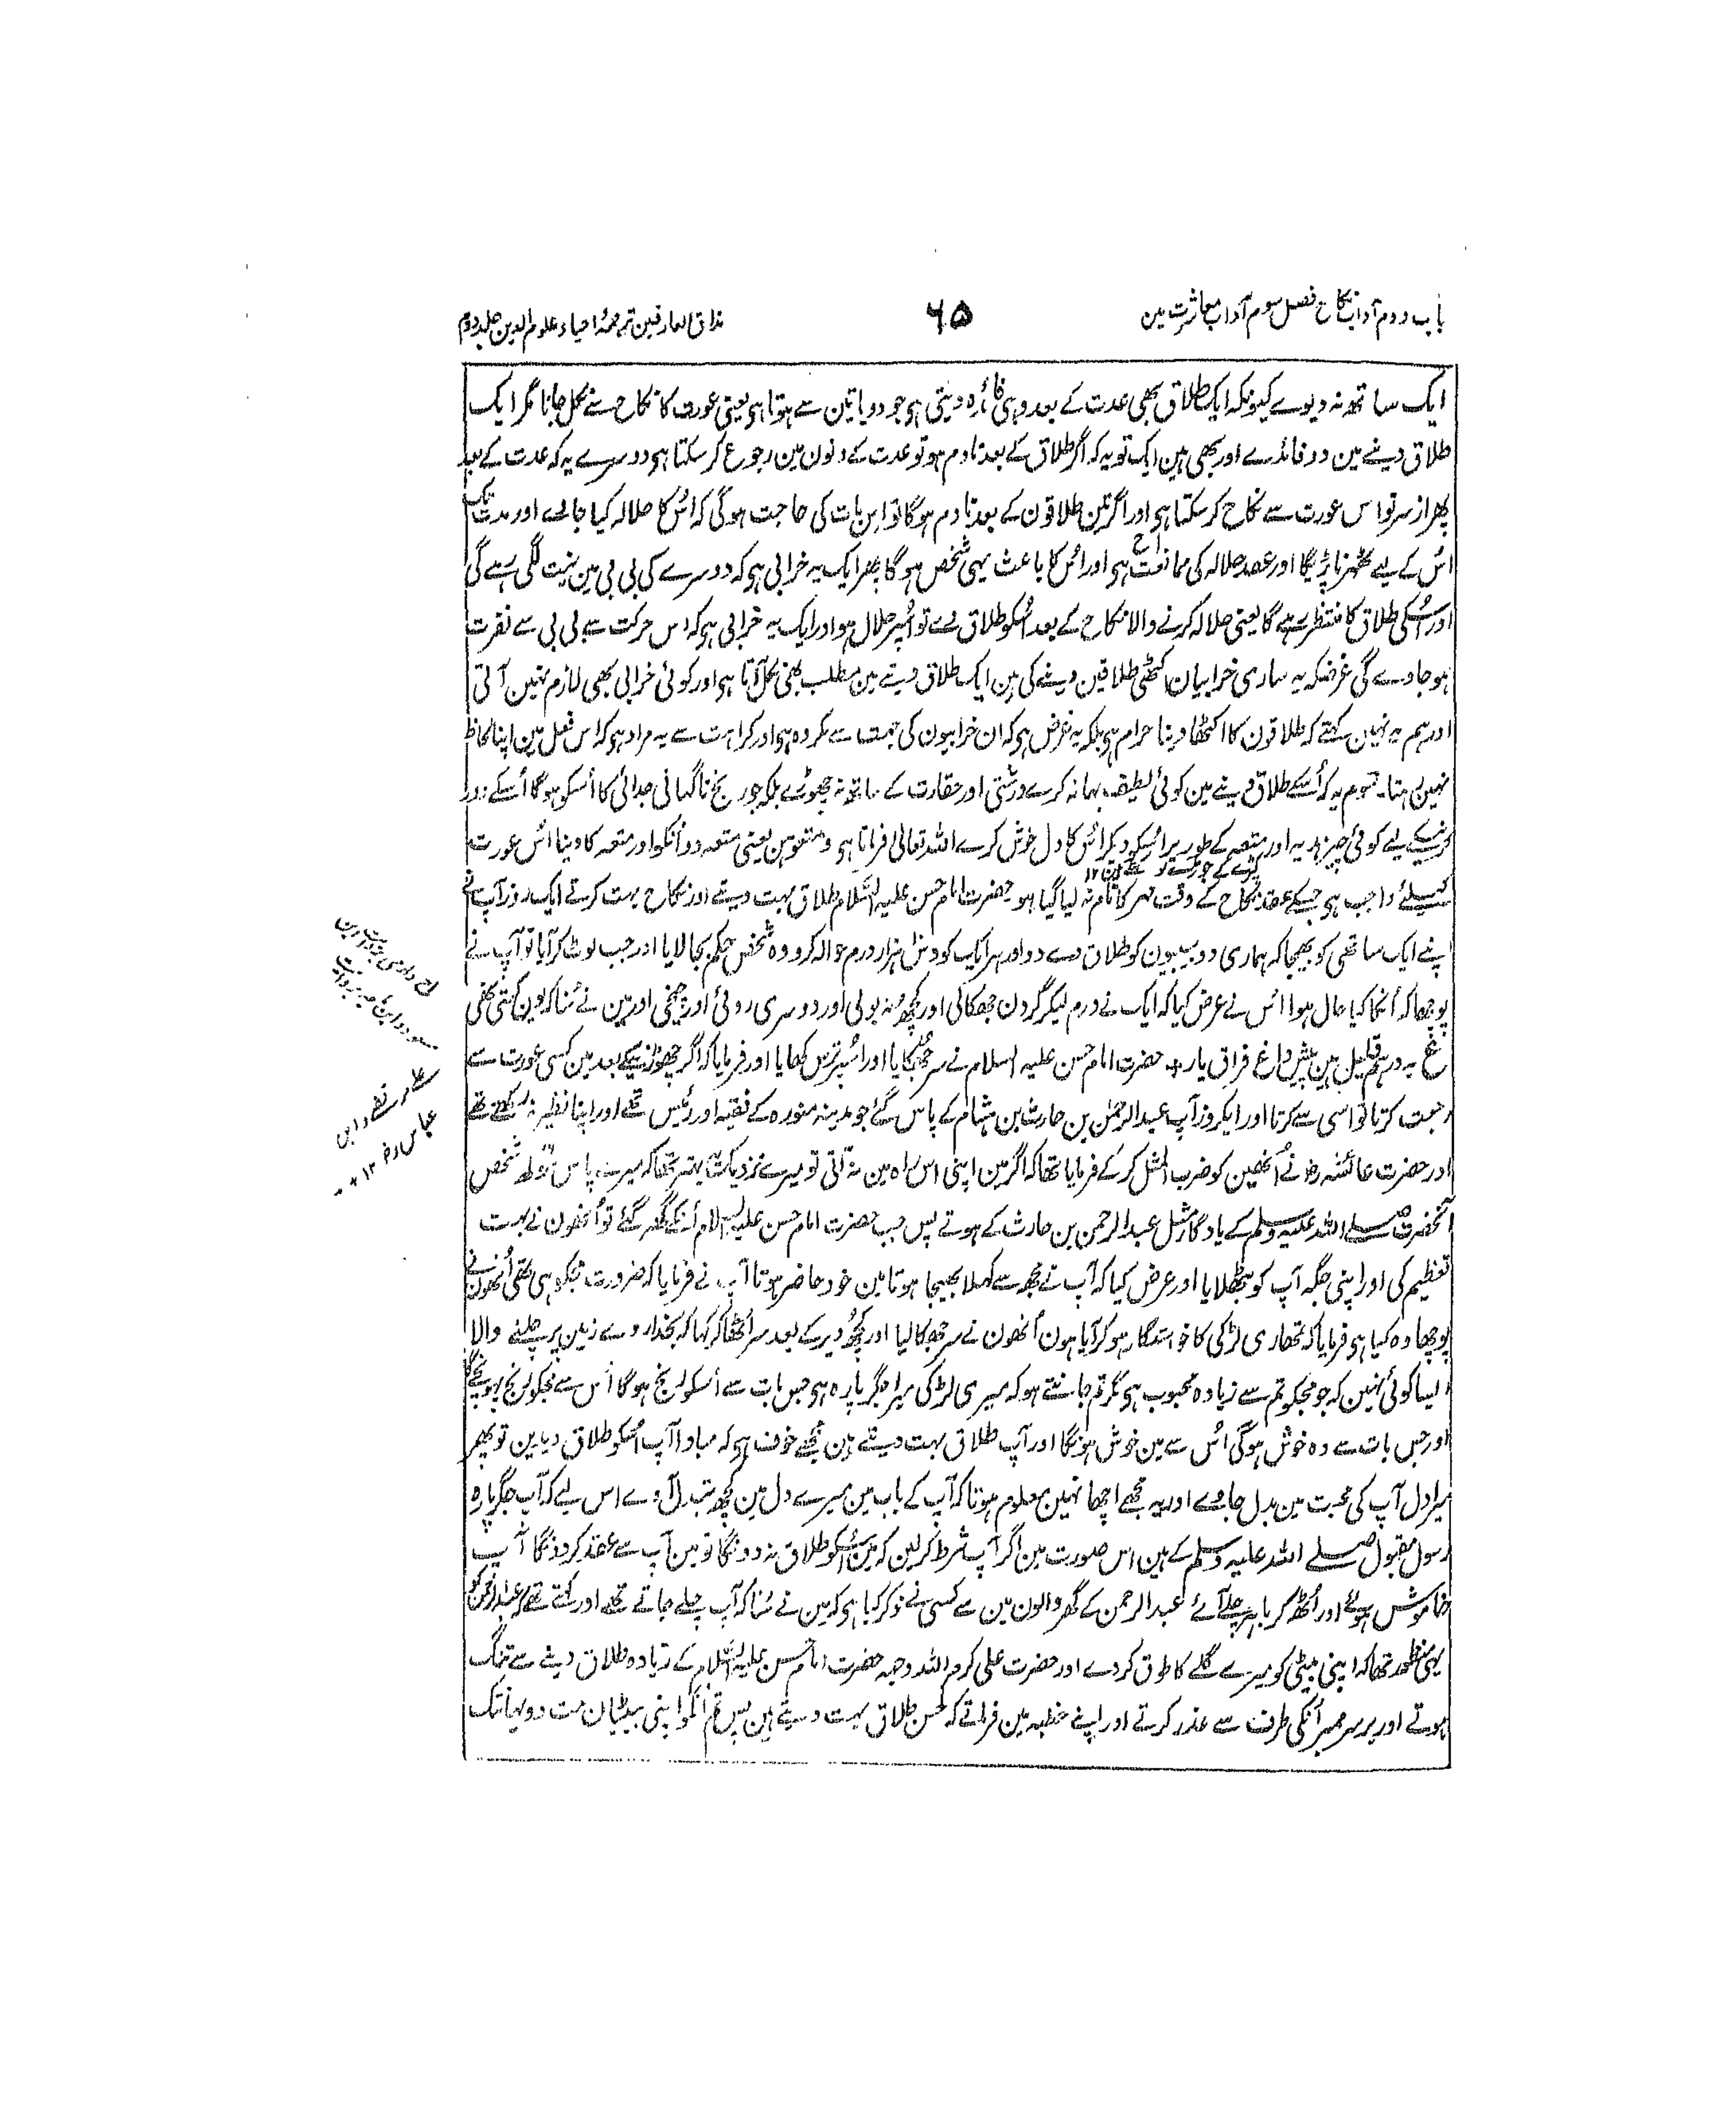 باب دوم آداب نکاح فصل سوم آداب معاشرت مین
٦٥
مذاق العارفین ترجمۂ احیاء علوم الدین جلد دوم
ایک ساتھ نہ دیوے کیونکہ ایک طلاق بھی عدت کے بعد وہی فائدہ دیتی ہی جو دو یا تین سے ہوتا ہی یعنی عورت کا نکاح سے نکل جانا مگر ایک
طلاق دینے مین دو فائدے اور بھی ہین ایک تو یہ کہ اگر طلاق کے بعد نادم ہو تو عدت کے دنون مین رجوع کر سکتا ہی دوسرے یہ کہ عدت کے بعد
پھر از سر نو اس عورت سے نکاح کر سکتا ہی اور اگر تین طلاقون کے بعد نادم ہوگا تو اس بات کی حاجت ہوگی کہ اُس کا حلالہ کیا جائے اور مدت تک
اُس کے لیے ٹھہرنا پڑیگا اور عقد حلالہ کی ممانعت ہی اور اُس کا باعث یہی شخص ہوگا پھر ایک یہ خرابی ہی کہ دوسرے کی بی بی مین نیت لگی رہے گی
اور اُسکی طلاق کا منتظر رہے گا یعنی حلالہ کرنے والا نکاح کے بعد اُسکو طلاق دے تو اُسپر حلال ہو اور ایک یہ خرابی ہی کہ اس حرکت سے بی بی سے نفرت
ہو جاوے گی غرضکہ یہ ساری خرابیان اکٹھی طلاقین دینے کی ہین ایک طلاق دینے مین مطلب بھی نکل آتا ہی اور کوئی خرابی بھی لازم نہین آتی
اور ہم یہ نہین کہتے کہ طلاقون کا اکٹھا دینا حرام ہی بلکہ یہ غرض ہی کہ ان خرابیون کی جہت سے مکروہ ہی اور کراہت سے یہ مراد ہی کہ اس فعل مین اپنا لحاظ
نہین رہتا۔ سوم یہ کہ اُسکے طلاق دینے مین کوئی لطیف بہانہ کرے درشتی اور حقارت کے ساتھ نہ چھوڑے بلکہ جو رنج ناگہانی جدائی کا اُسکو ہوگا اُسکے دور
کرنیکے لیے کوئی چیز ہدیہ اور متعہ کے طور پر اُسکو دیکر اُس کا دل خوش کرے اللہ تعالی فرماتا ہی ومتعوہن یعنی متعہ دو اُنکو اور متعہ کا دینا اُس عورت
کیلئے واجب ہی جسکے عقد نکاح کے وقت مہر کا نام نہ لیا گیا ہو حضرت امام حسن علیہ السلام طلاق بہت دیتے اور نکاح بہت کرتے ایک روز آپ نے
اپنے ایک ساتھی کو بھیجا کہ ہماری دو بیبیون کو طلاق دے دو اور ہر ایک کو دس ہزار درم حوالہ کرو وہ شخص حکم بجا لایا اور جب لوٹ کر آیا تو آپ نے
پوچھا کہ اُنکا کیا حال ہوا اُس نے عرض کیا کہ ایک نے درم لیکر گردن جھکالی اور کچھ نہ بولی اور دوسری روئی اور چیخی اور مین نے سُنا کہ یون کہتی تھی
ع یہ درہم قلیل ہین پیش داغ فراق یار + حضرت امام حسن علیہ السلام نے سر جھکایا اور اُسپر ترس کھایا اور فرمایا کہ اگر چھوڑنیکے بعد مین کسی عورت سے
رجعت کرتا تو اسی سے کرتا اور ایکروز آپ عبدالرحمٰن بن حارث بن ہشام کے پاس گئے جو مدینہ منورہ کے فقیہ اور رئیس تھے اور اپنا نظیر نہ رکھتے تھے
اور حضرت عائشہ رضہ نے اُنھین کو ضرب المثل کر کے فرمایا تھا کہ اگر مین اپنی اس راہ مین نہ آتی تو میرے نزدیک بہتر تھا کہ میرے پاس سولہ شخص
آنحضرت صلے اللہ علیہ وسلم کے یادگار مثل عبدالرحمن بن حارث کے ہوتے پس جب حضرت امام حسن علیہ السلام اُنکے گھر گئے تو اُنھون نے بہت
تعظیم کی اور اپنی جگہ آپ کو بٹھلایا اور عرض کیا کہ آپ نے مجھ سے کہلا بھیجا ہوتا مین خود حاضر ہوتا آپ نے فرمایا کہ ضرورت مجکو ہی تھی اُنھون نے
پوچھا وہ کیا ہی فرمایا کہ تمھاری لڑکی کا خواستگار ہو کر آیا ہون اُنھون نے سر جھکا لیا اور کچھ دیر کے بعد سر اُٹھا کر کہا کہ بخدا روے زمین پر چلنے والا
ایسا کوئی نہین کہ جو مجکو تم سے زیادہ محبوب ہی مگر تم جانتے ہو کہ میری لڑکی میرا جگر پارہ ہی جس بات سے اُسکو رنج ہوگا اُس سے مجکو رنج پہونچیگا
اور جس بات سے وہ خوش ہوگی اُس سے مین خوش ہونگا اور آپ طلاق بہت دیتے ہین مجھے خوف ہی کہ مبادا آپ اُسکو طلاق دیدین تو پھر
میرا دل آپ کی محبت مین بدل جاوے اور یہ مجھے اچھا نہین معلوم ہوتا کہ آپ کے باب مین میرے دل مین کچھ تبدل آوے اس لیے کہ آپ جگر پارہ
رسول مقبول صلے اللہ علیہ وسلم کے ہین اس صورت مین اگر آپ شرط کر لین کہ مین اُسکو طلاق نہ دونگا تو مین آپ سے عقد کر دونگا آپ
خاموش ہوئے اور اُٹھ کر باہر چلے آئے عبدالرحمن کے گھر والون مین سے کسی نے ذکر کیا ہی کہ مین نے سُنا کہ آپ چلے جاتے تھے اور کہتے تھے کہ عبدالرحمن کو
یہی منظور تھا کہ اپنی بیٹی کو میرے گلے کا طوق کر دے اور حضرت علی کرم اللہ وجہہ حضرت امام حسن علیہ السلام کے زیادہ طلاق دینے سے تنگ
ہوتے اور بر سر ممبر اُنکی طرف سے عذر کرتے اور اپنے خطبہ مین فرماتے کہ حسن طلاق بہت دیتے ہین پس تم اُنکو اپنی بیٹیان مت دو یہانتک
عباس رضہ ۱۲